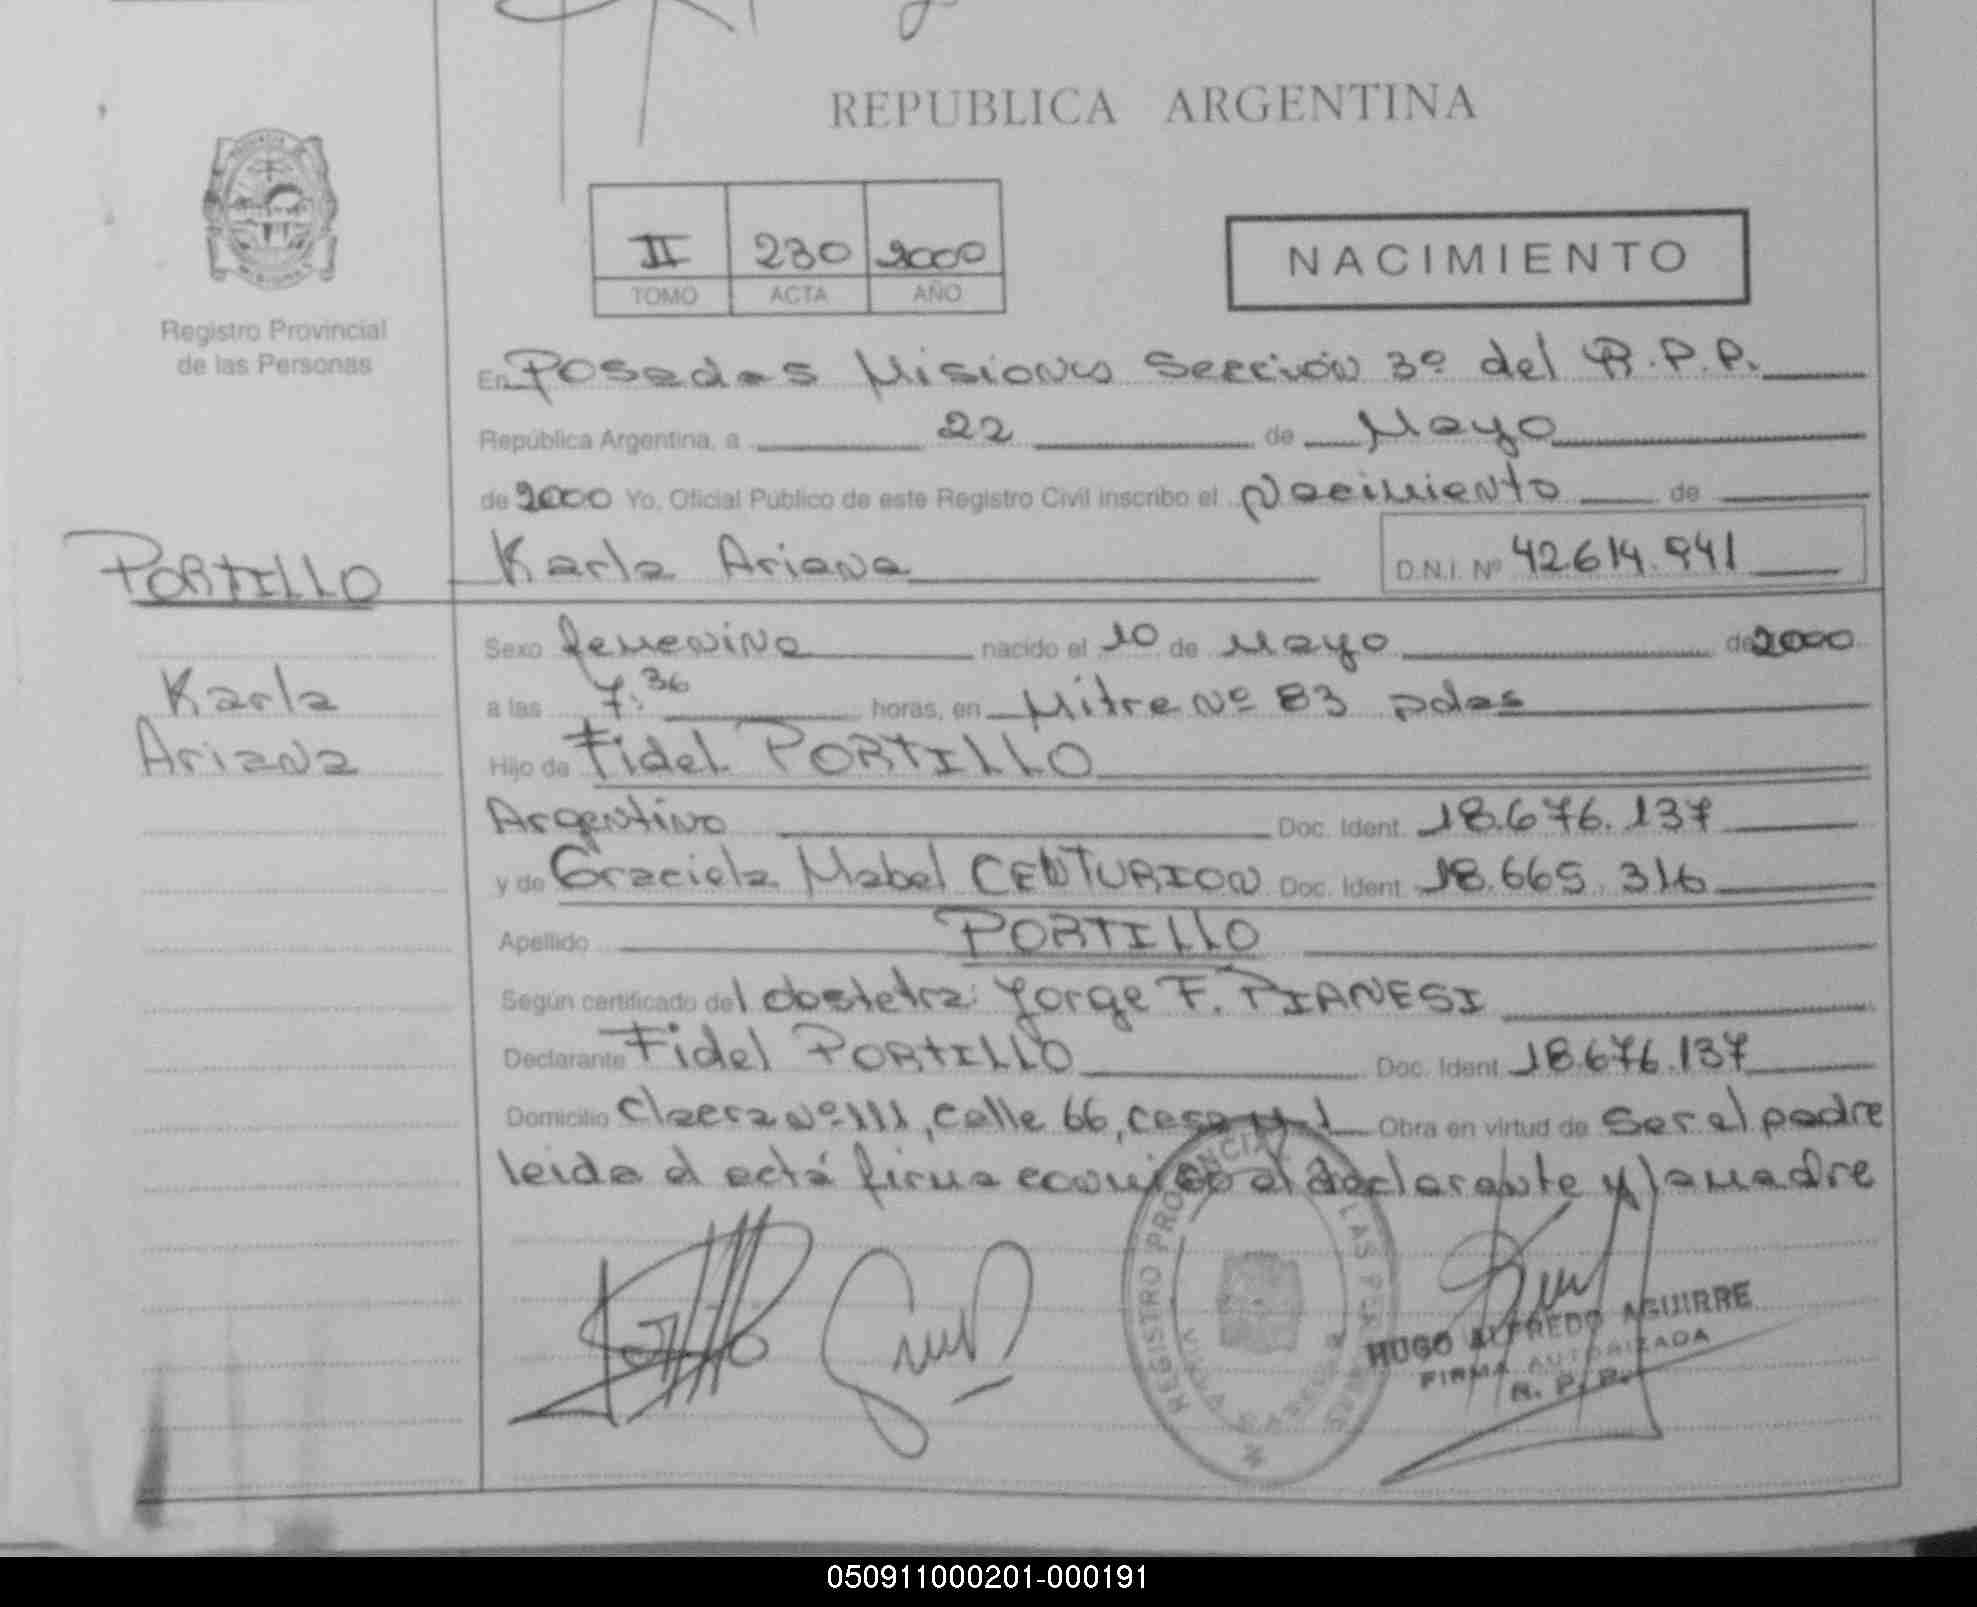 REPUBLICA ARGENTINA
II 230 2000
TOMO ACTA AÑO
NACIMIENTO
Registro Provincial
de las Personas
En Posadas Misiones Sección 3º del R.P.P.
República Argentina, a 22 de Mayo
de 2000 Yo, Oficial Público de este Registro Civil inscribo el Nacimiento de
PORTILLO
Karla Ariana
D.N.I. Nº 42.614.941
Karla
Ariana
Sexo femenino nacido el 10 de Mayo de 2000
a las 7:36 horas, en Mitre Nº 83 pdas
Hijo de Fidel PORTILLO
Argentino Doc. Ident. 18.676.137
y de Graciela Mabel CENTURION Doc. Ident. 18.665.316
Apellido PORTILLO
Según certificado del obstetra: Jorge F. PIANESI
Declarante Fidel PORTILLO Doc. Ident. 18.676.137
Domicilio Nº 111, calle 66, casa Obra en virtud de ser el padre
leida el acta firma conmigo el declarante y la madre
REGISTRO PROVINCIAL LAS PERSONAS
POSADAS
HUGO ALFREDO AGUIRRE
FIRMA AUTORIZADA
R. P. P.
050911000201-000191